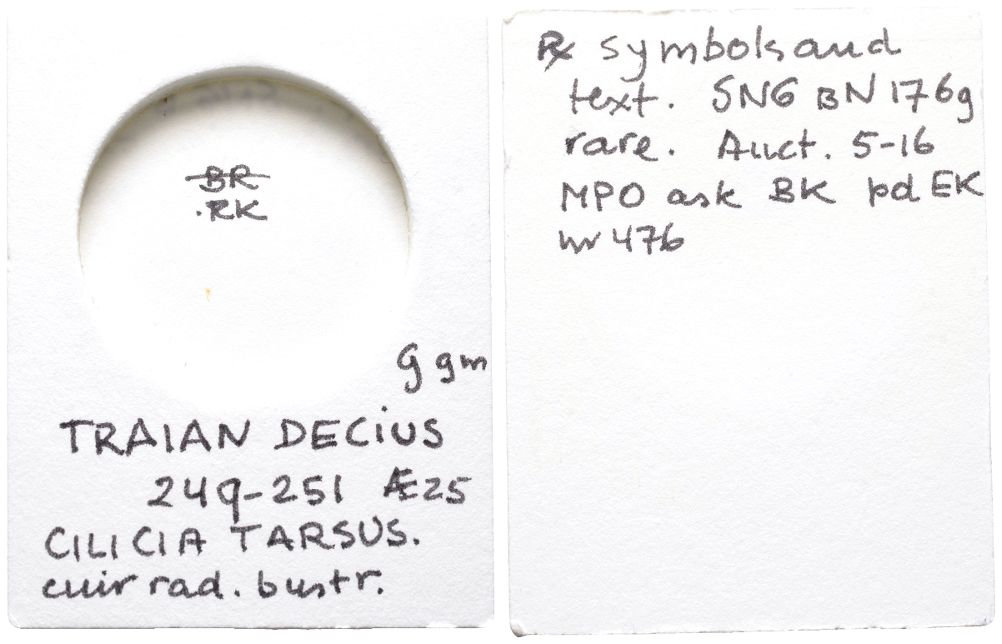 BR
.RK
G gm
TRAIAN DECIUS
249-251 Æ25
CILICIA TARSUS.
cuir rad. bust r.
℞ symbols and
text. SNG BN 1769
rare. Auct. 5-16
MPO ask BK pd EK
nr 476